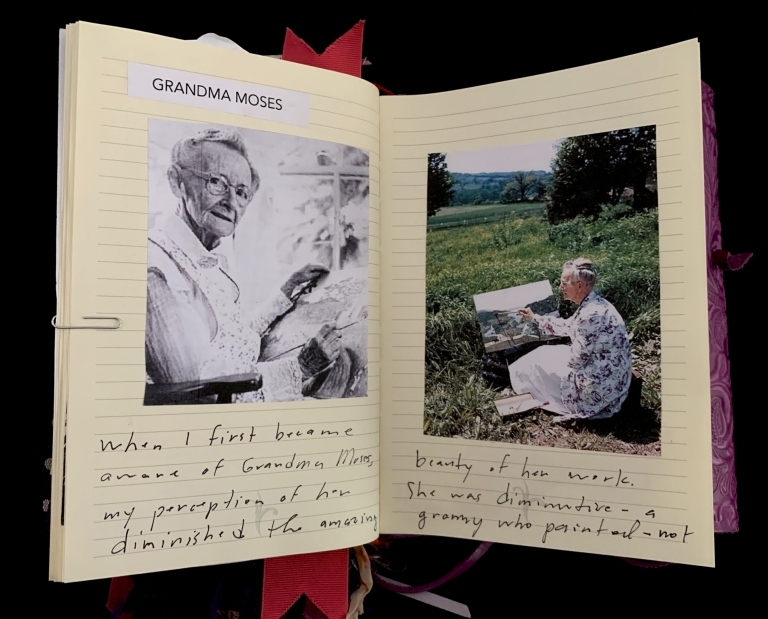 GRANDMA MOSES
when I first became
aware of Grandma Moses,
my perception of her
diminished the amazing
beauty of her work.
She was diminutive - a
granny who painted - not